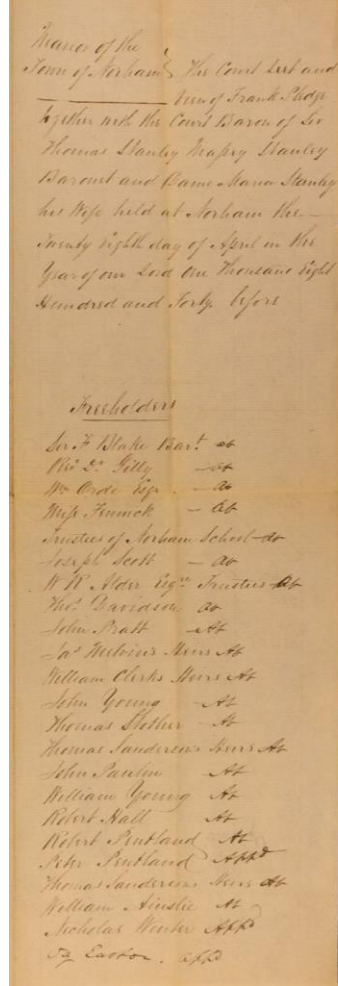 Manor of the
Town of Norham } The Court Leet and
View of Frank Pledge
together with the Court Baron of Sir
Thomas Stanley Massey Stanley
Baronet and Dame Maria Stanley
his Wife held at Norham the
Twenty Eighth day of April in the
Year of our Lord One Thousand Eight
Hundred and Forty before
Freeholders
Sir F Blake Bart ab
Revd Dr Gilly – ab
Wm Orde Esqr – ab
Miss Fenwick – ab
Trustees of Norham School – ab
Joseph Scott – ab
W R Alder Esqrs Trustees ab
Thos Davidson ab
John Pratt – ab
Jas Melvins Heirs ab
William Clerks Heirs ab
John Young – ab
Thomas Stother – ab
Thomas Sandersons Heirs ab
John Paulin ab
William Young ab
Robert Hall ab
Robert Pentland ab
Peter Pentland Appd
Thomas Sandersons Heirs ab
William Ainslie ab
Nicholas Winter Appd
Easton. appd